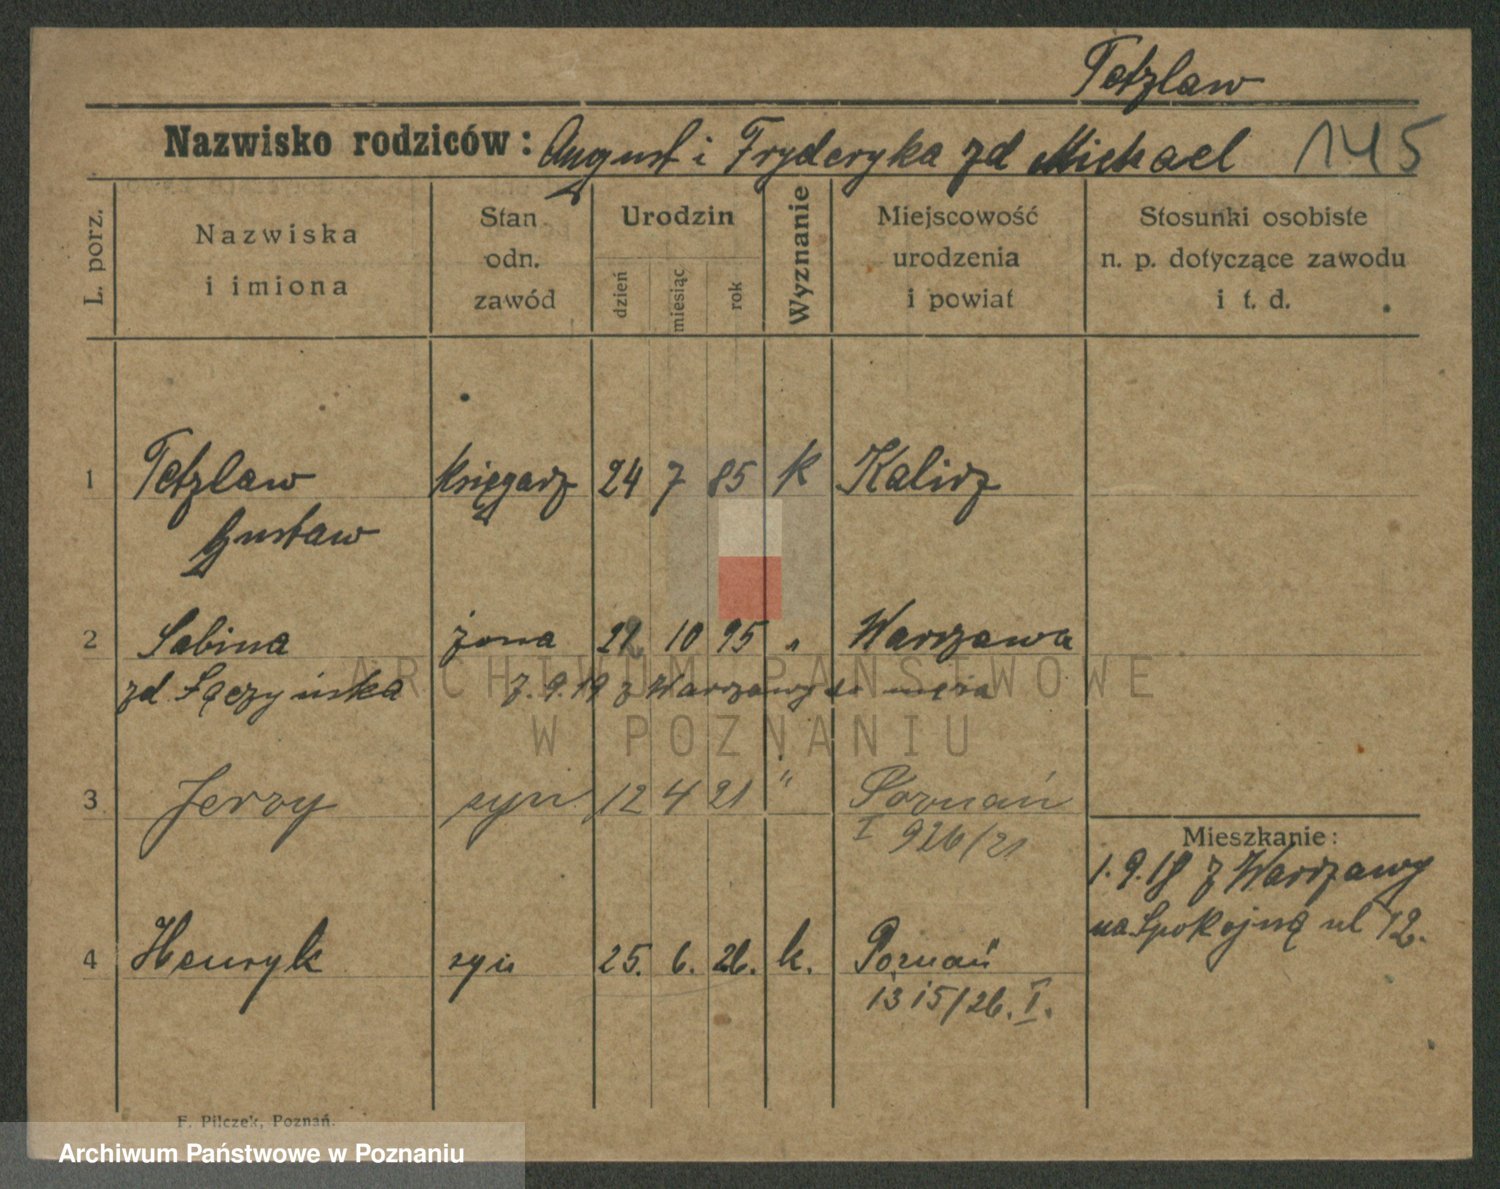 Tetzlaw
Nazwisko rodziców: August i Fryderyka zd Michael 145
L. porz.
Nazwiska
i imiona
Stan
odn.
zawód
Urodzin
dzień
miesiąc
rok
Wyznanie
Miejscowość
urodzenia
i powiat
Stosunki osobiste
n. p. dotyczące zawodu
i t. d.
1 Tetzlaw księgarz 24 7 85 k Kalisz
Gustaw
2 Sabina żona 22 10 95 " Warszawa
zd. Łączyńska 7.9.19 z Warszawy do męża
3 Jerzy syn 12 4 21 " Poznań
I 926/21
Mieszkanie:
1.9.18 z Warszawy
na Spokojną ul 12.
4 Henryk syn 25. 6. 26. k. Poznań
1315/26. I.
F. Pilczek, Poznań.
ARCHIWUM PAŃSTWOWE
W POZNANIU
Archiwum Państwowe w Poznaniu